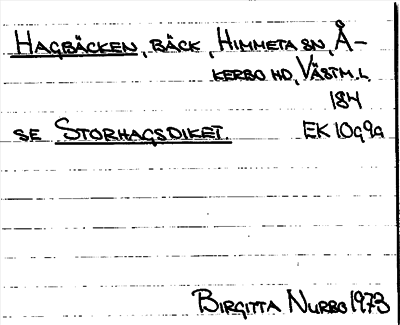 HAGBÄCKEN, BÄCK, HIMMETA SN, Å-
KERBO HD, VÄSTM. L.
184
SE STORHAGSDIKET. EK 10g9a
BIRGITTA NURBO 1973